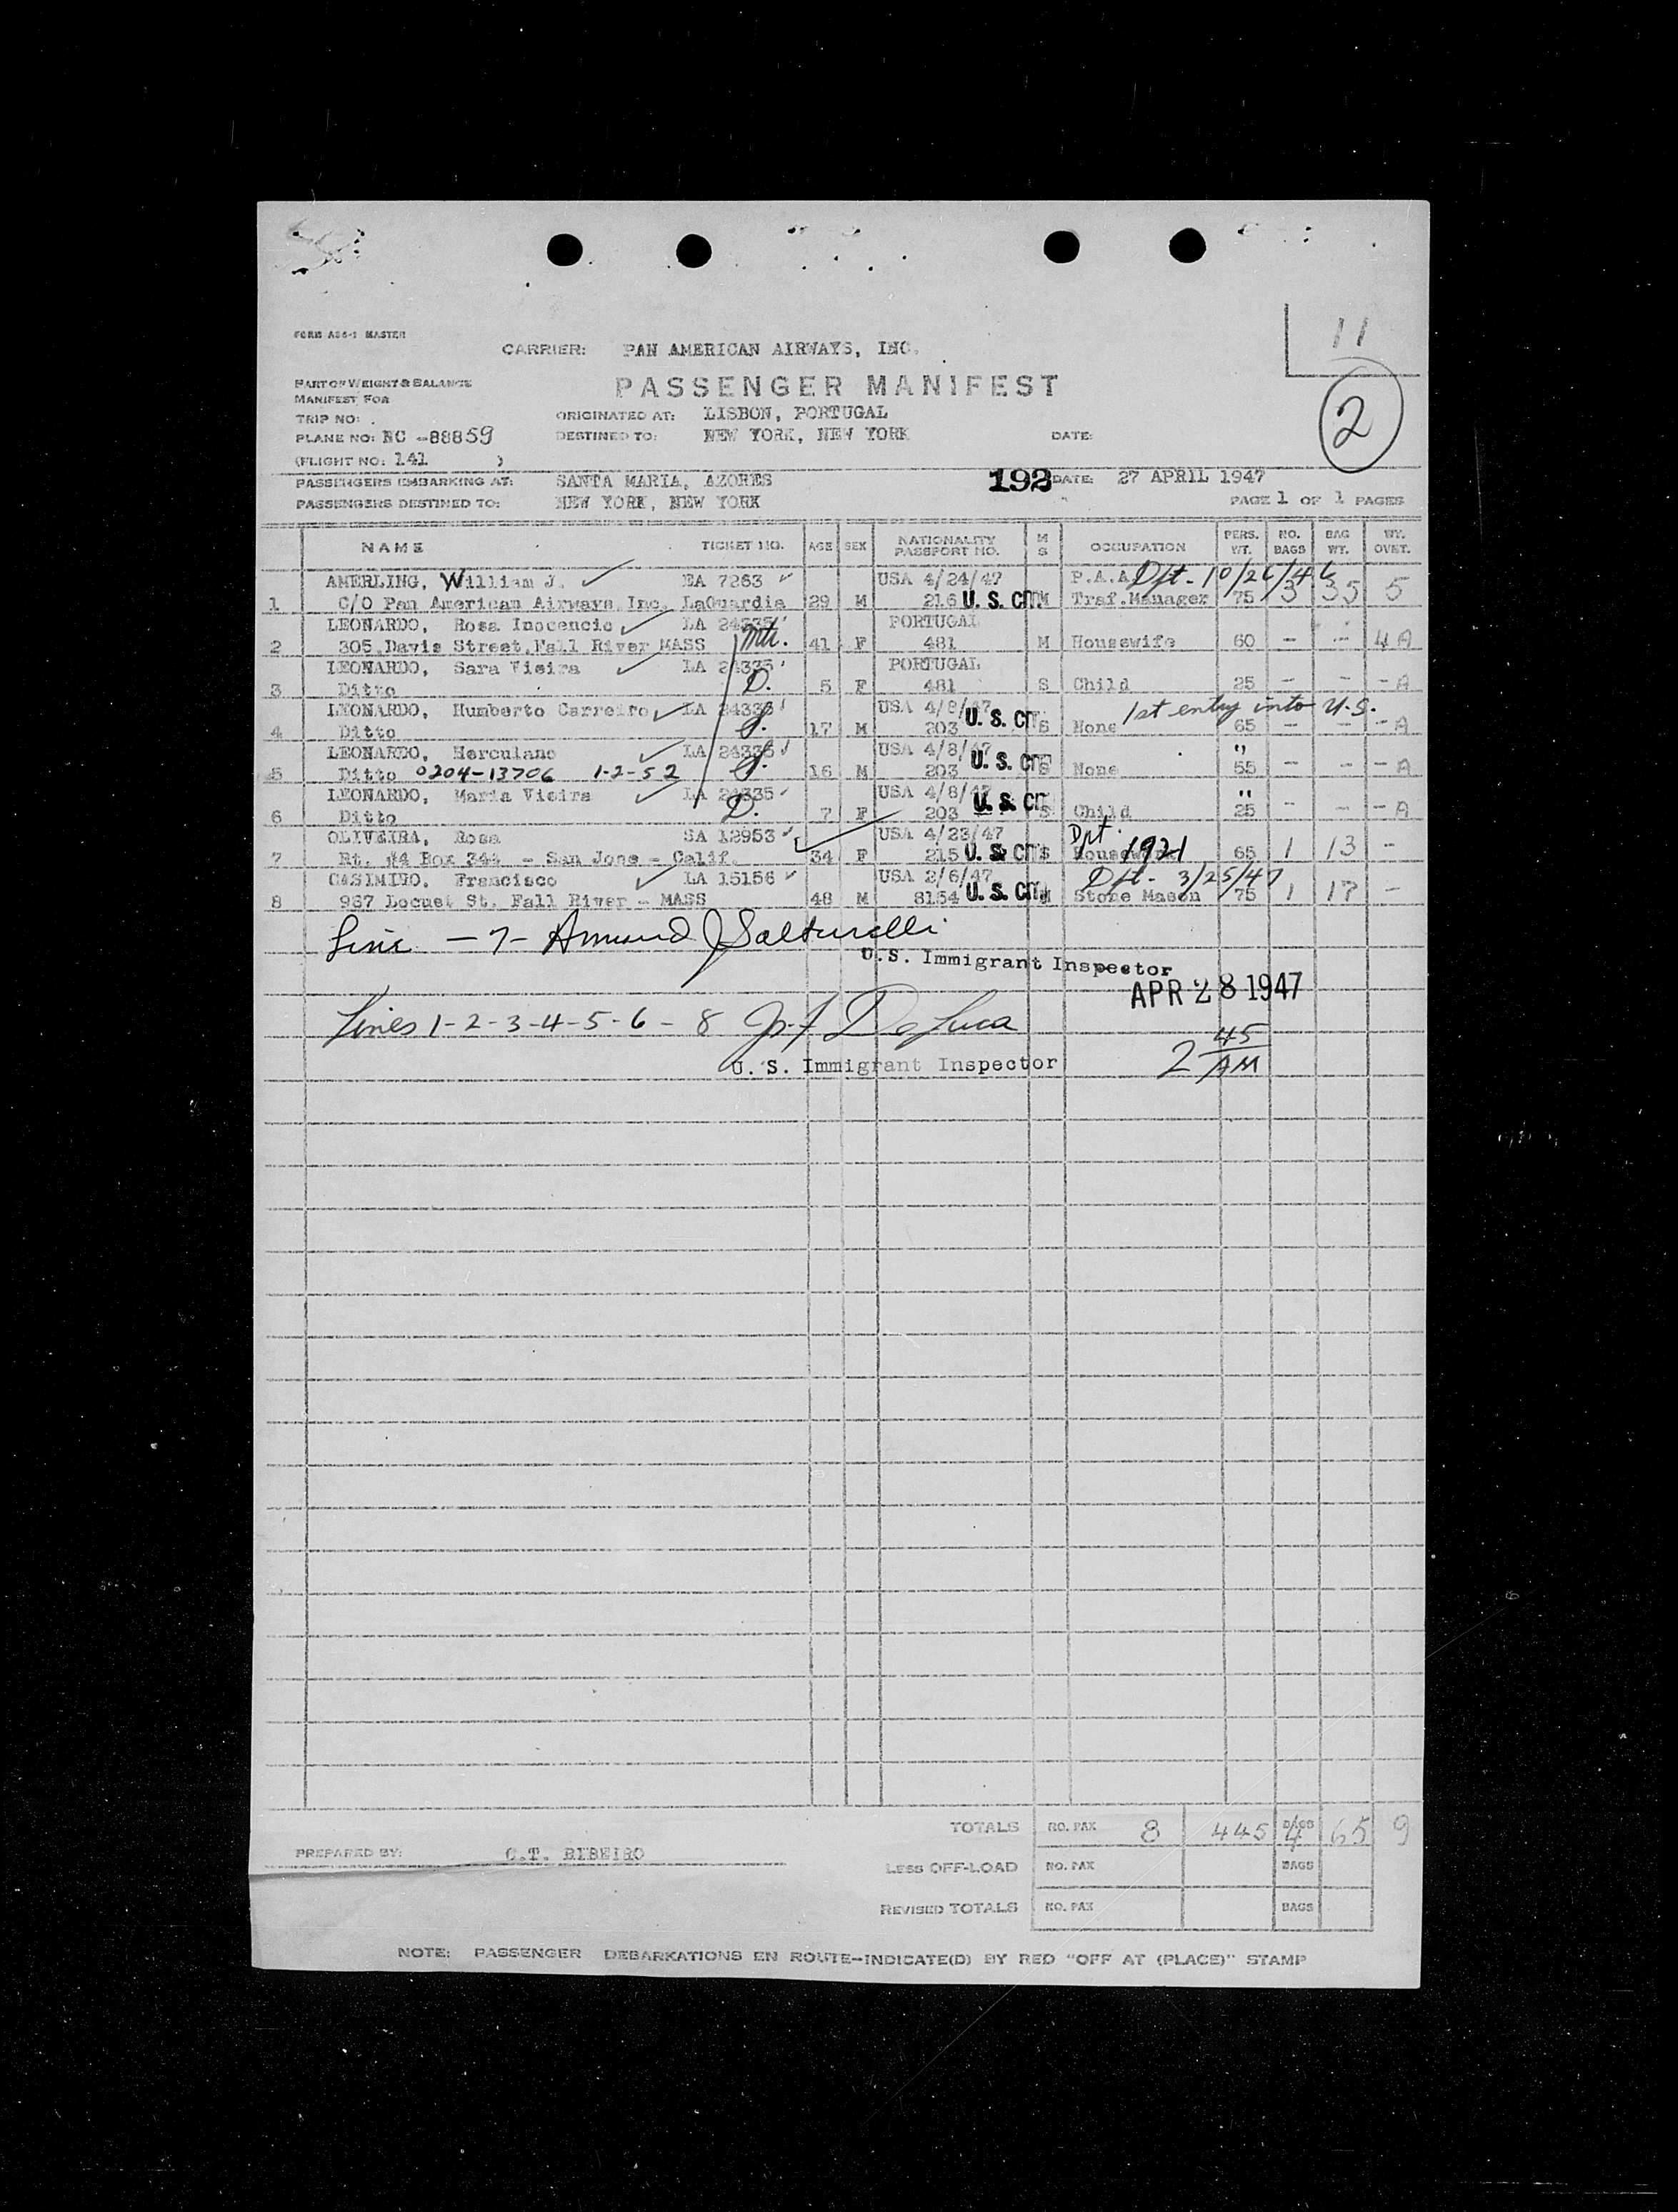 11
2
FORM A26-1 MASTER
CARRIER: PAN AMERICAN AIRWAYS, INC.
PART OF WEIGHT & BALANCE
MANIFEST FOR
PASSENGER MANIFEST
TRIP NO:
ORIGINATED AT: LISBON, PORTUGAL
PLANE NO: NC -88859
DESTINED TO: NEW YORK, NEW YORK DATE:
(FLIGHT NO: 141 )
PASSENGERS EMBARKING AT: SANTA MARIA, AZORES 192 DATE: 27 APRIL 1947
PASSENGERS DESTINED TO: NEW YORK, NEW YORK PAGE 1 OF 1 PAGES
NAME TICKET NO. AGE SEX NATIONALITY PASSPORT NO. M S OCCUPATION PERS. WT. NO. BAGS BAG WT. WT. OVET.
AMERLING, William J. EA 7263 USA 4/24/47 P.A.A. Dpt. 10/26/46
1 C/O Pan American Airways Inc. LaGuardia 29 M 216 U. S. CIT. M Traf.Manager 75 3 35 5
LEONARDO, Rosa Inocencio LA 24335 PORTUGAL
2 305 Davis Street,Fall River MASS Mth. 41 F 481 M Housewife 60 - - 4 A
LEONARDO, Sara Vieira LA 24335 PORTUGAL
3 Ditto D. 5 F 481 S Child 25 - - - A
LEONARDO, Humberto Carreiro LA 24336 USA 4/8/47 1st entry into U.S.
4 Ditto S. 17 M 203 U. S. CIT. S None 65 - - - A
LEONARDO, Herculano LA 24336 USA 4/8/47 "
5 Ditto 0204-13706 1-2-52 S. 16 M 203 U. S. CIT. S None 55 - - - A
LEONARDO, Maria Vieira LA 24335 USA 4/8/47 "
6 Ditto D. 7 F 203 U. S. CIT. S Child 25 - - - A
OLIVEIRA, Rosa SA 12953 USA 4/23/47 Dpt. 1921
7 Rt. #4 Box 344 - San Jose - Calif. 34 F 215 U. S. CIT. S Housework 65 1 13 -
CASIMIRO, Francisco LA 15156 USA 2/6/47 Dpt. 3/25/47
8 967 Locust St. Fall River - MASS 48 M 8154 U. S. CIT. M Stone Mason 75 1 17 -
Line - 7 - Armand J Salturelli
U.S. Immigrant Inspector
APR 28 1947
Lines 1-2-3-4-5-6- 8 De Luca
U. S. Immigrant Inspector
2 45 AM
TOTALS NO. PAX 8 445 BAGS 4 65 9
PREPARED BY: C.T. RIBEIRO
LESS OFF-LOAD NO. PAX BAGS
REVISED TOTALS NO. PAX BAGS
NOTE: PASSENGER DEBARKATIONS EN ROUTE-INDICATE(D) BY RED "OFF AT (PLACE)" STAMP